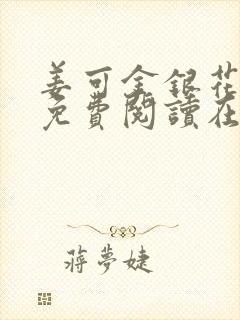 姜可金銀花
免費閱讀在
蔣夢婕